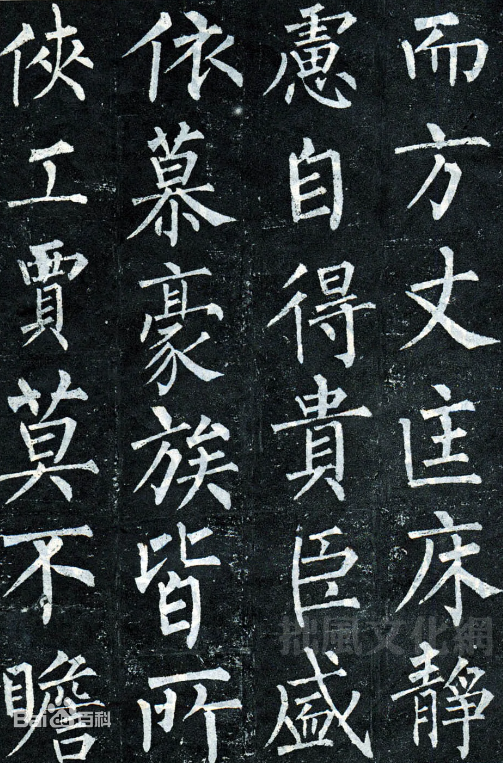 而方丈匡床靜
慮自得貴臣盛
依慕豪族皆所
俠工賈莫不瞻
拙風文化網
Bai百科